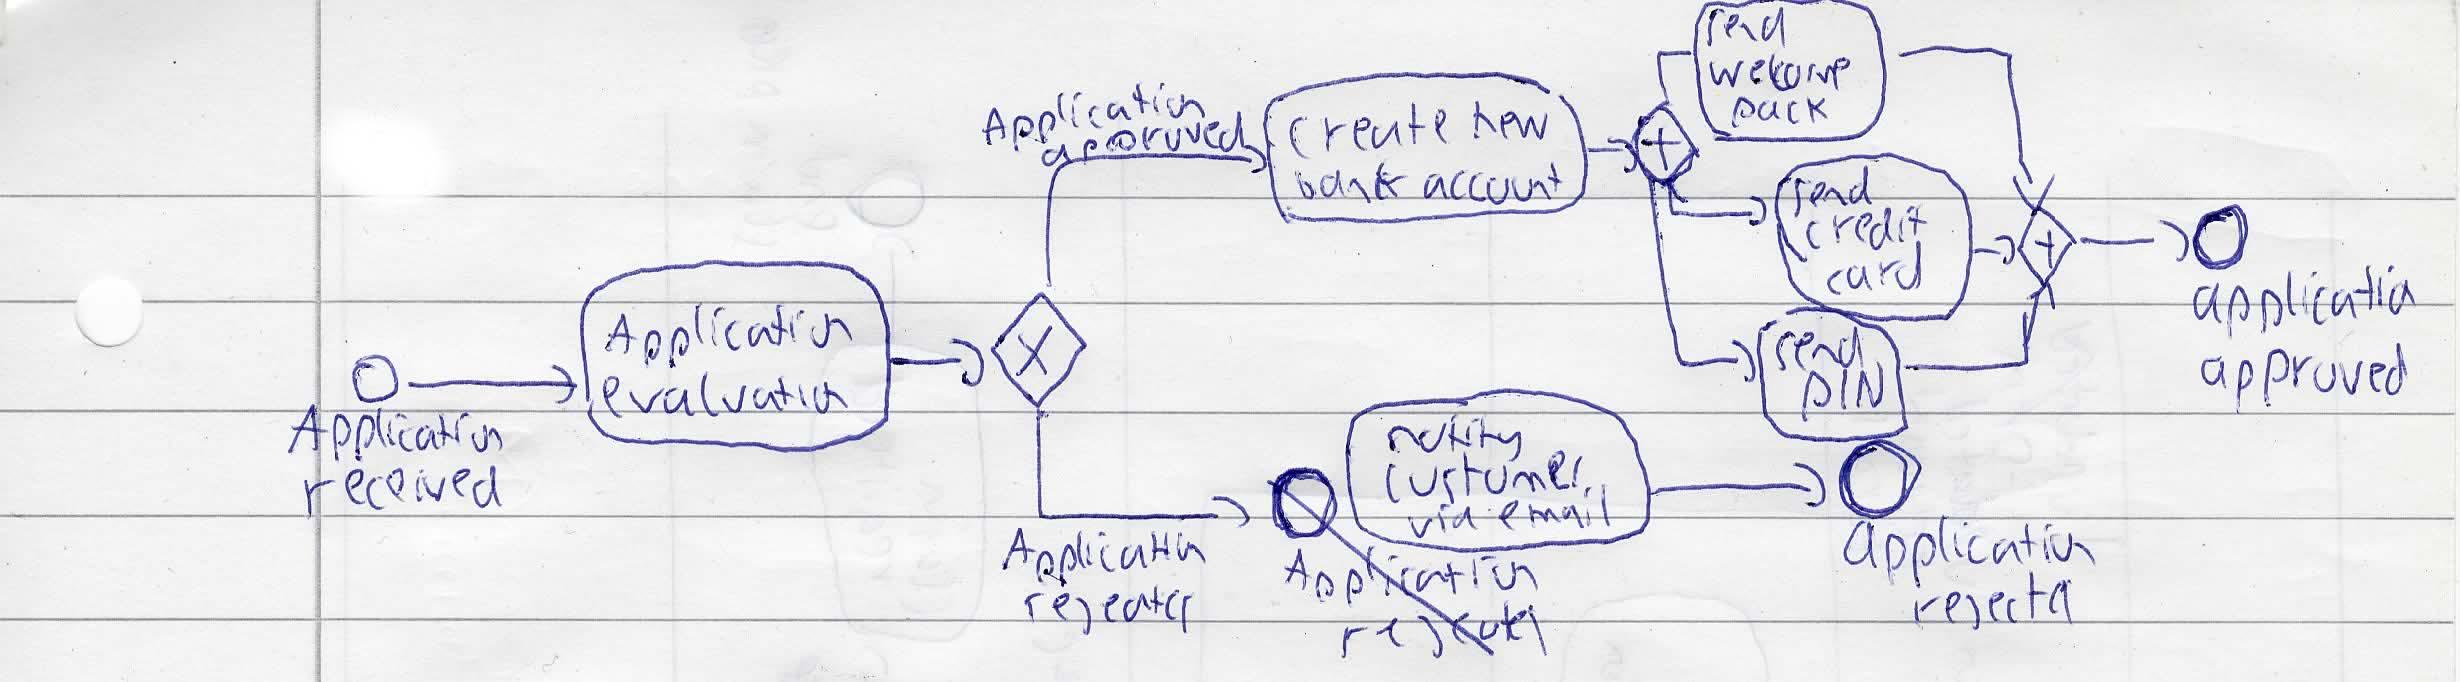 Application
received
Application
evaluation
X
Application
approved
create new
bank account
+
send
welcome
pack
send
credit
card
send
PIN
+
application
approved
Application
rejected
Application
rejected
notify
customer
via email
application
rejected